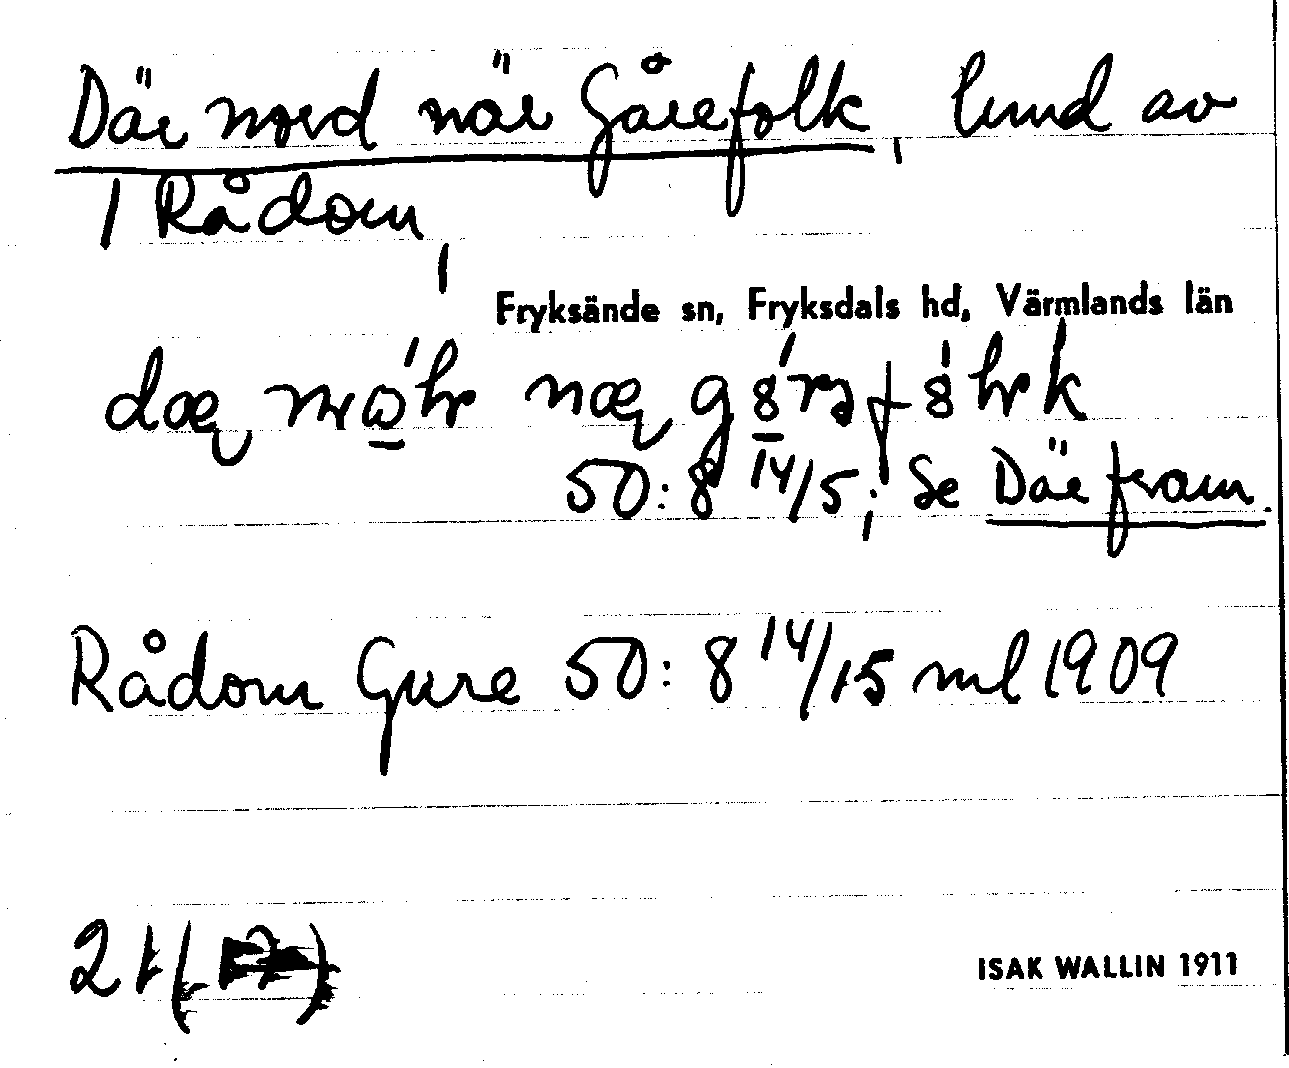 Där nord när Gårefolk, lund av
1 Rådom,
Fryksände sn, Fryksdals hd, Värmlands län
50:8 14/5; Se Där fram.
Rådom Gure 50:8 14/15 ml 1909
21
ISAK WALLIN 1911